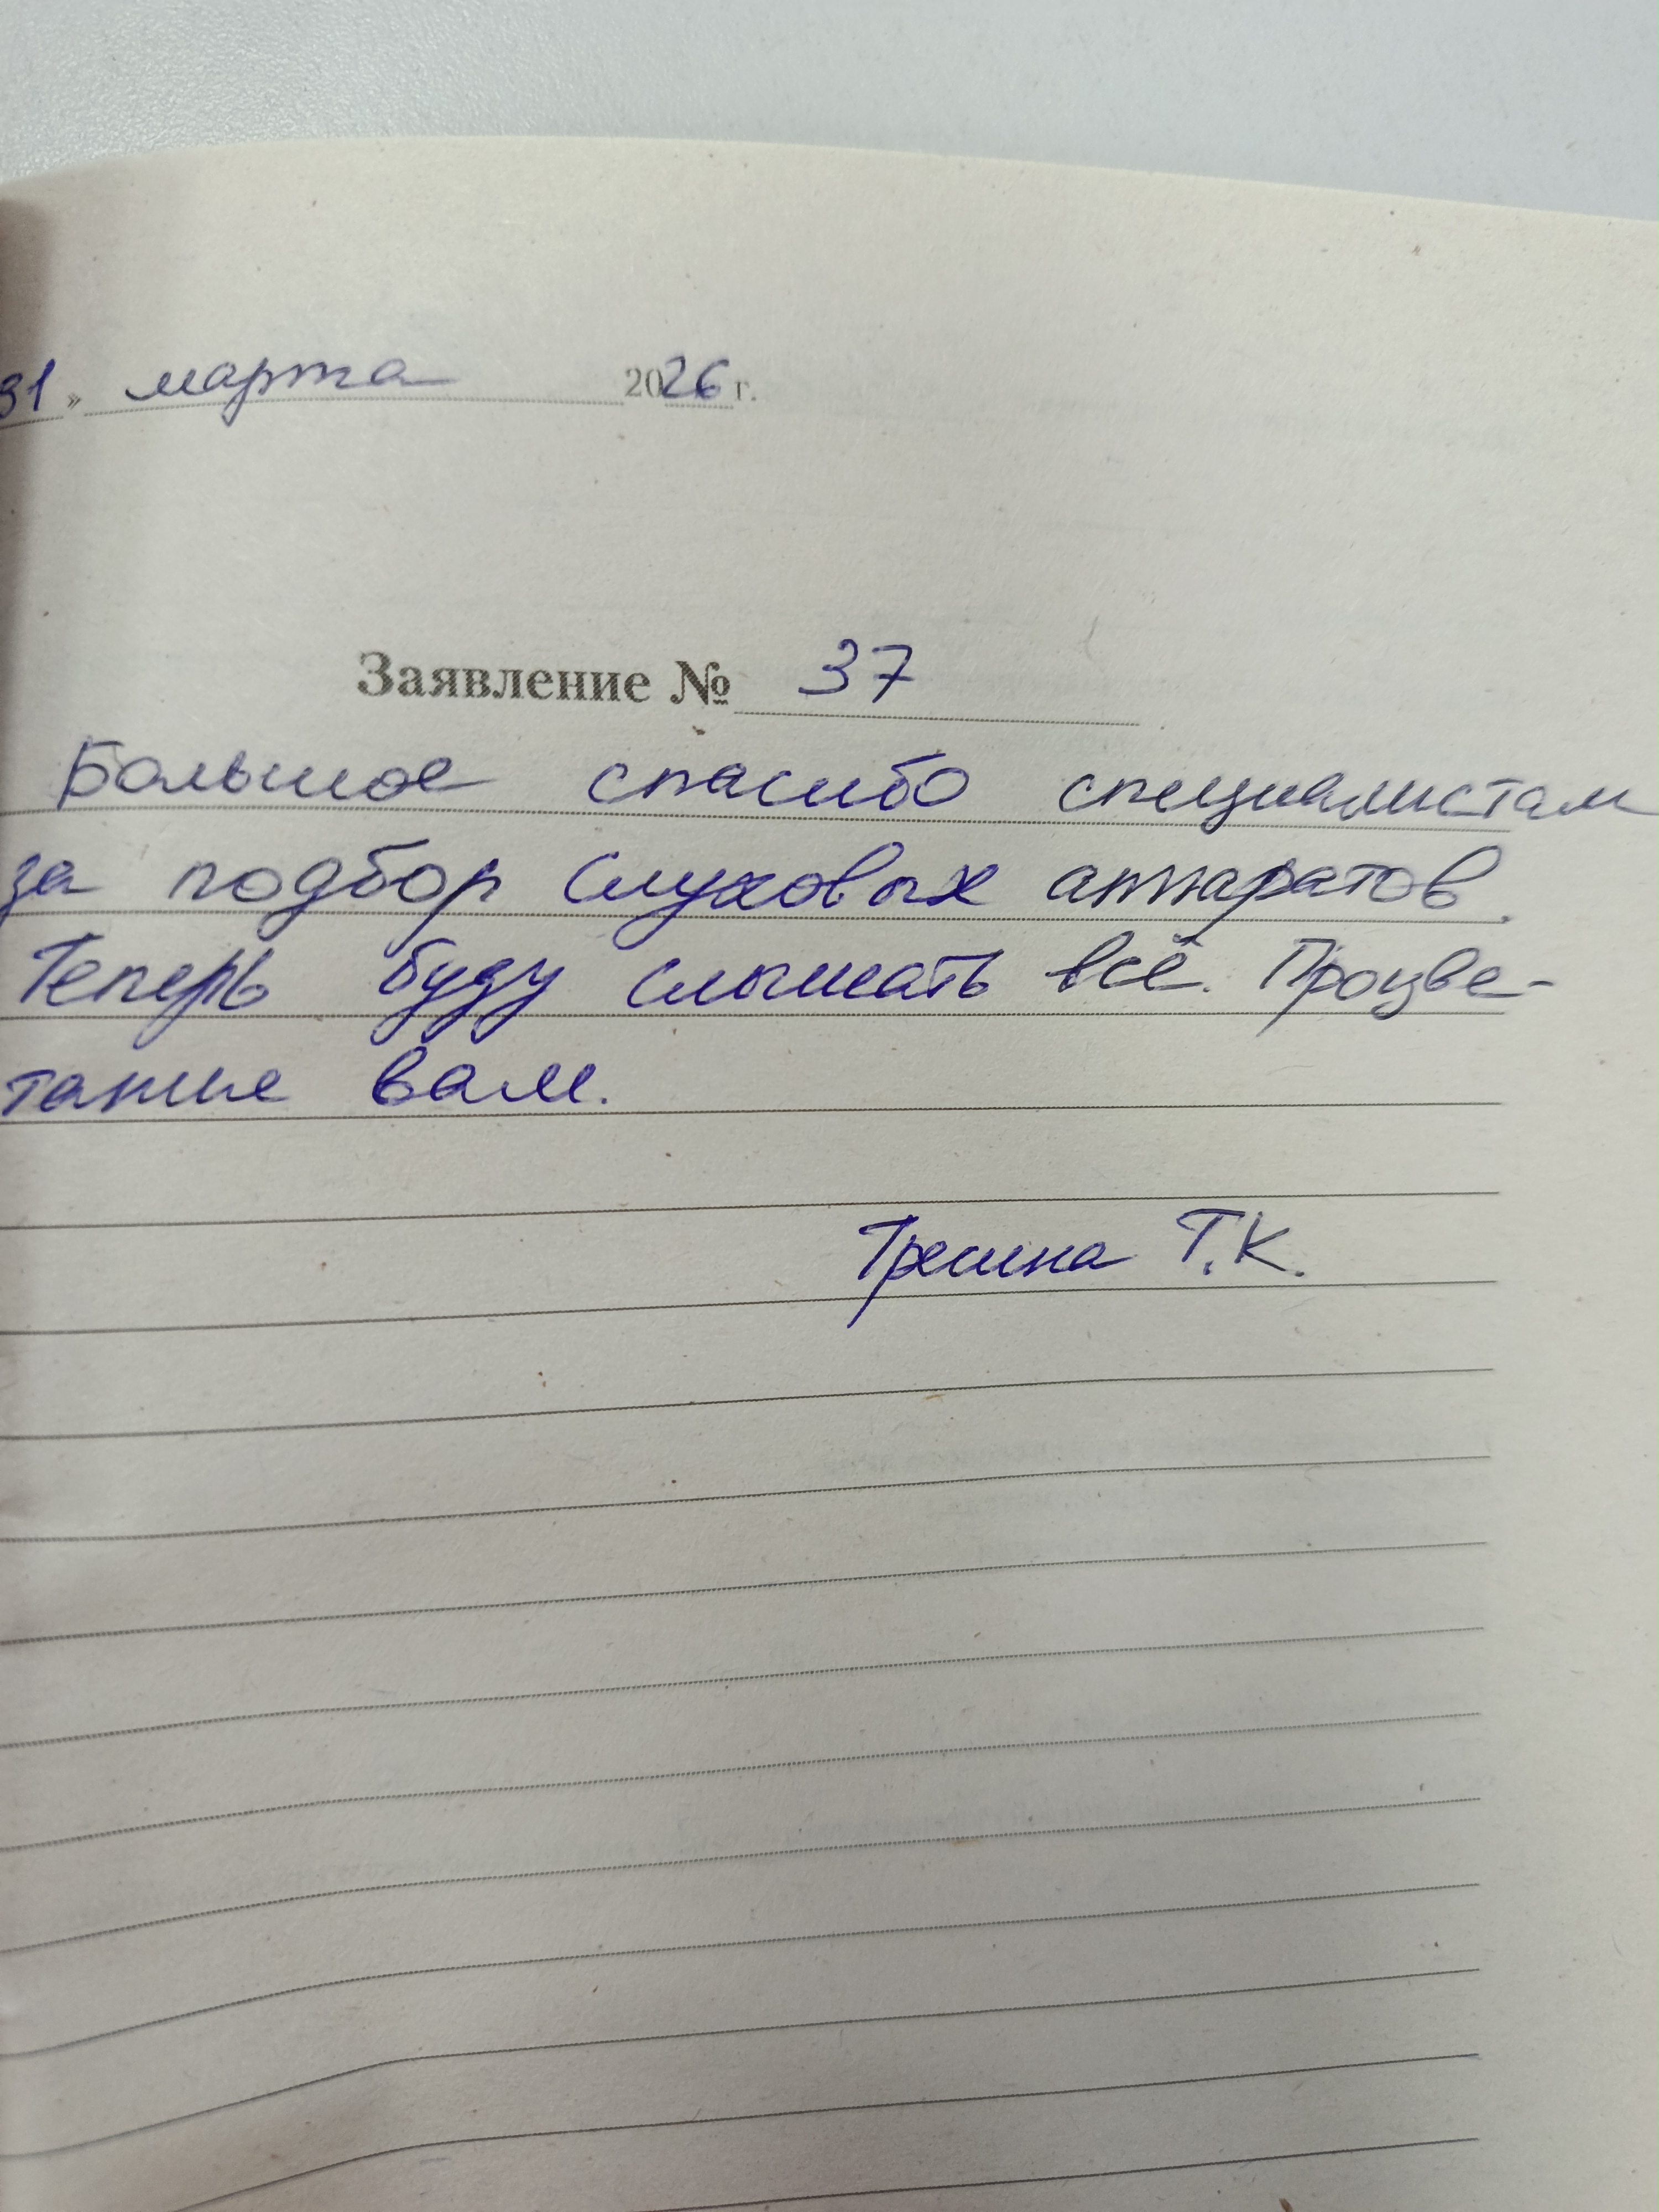 31 » марта 2026 г.
Заявление № 37
Большое спасибо специалистам
за подбор слуховых аппаратов.
Теперь буду слышать всё. Процве-
тание вам.
Трешина Т.К.